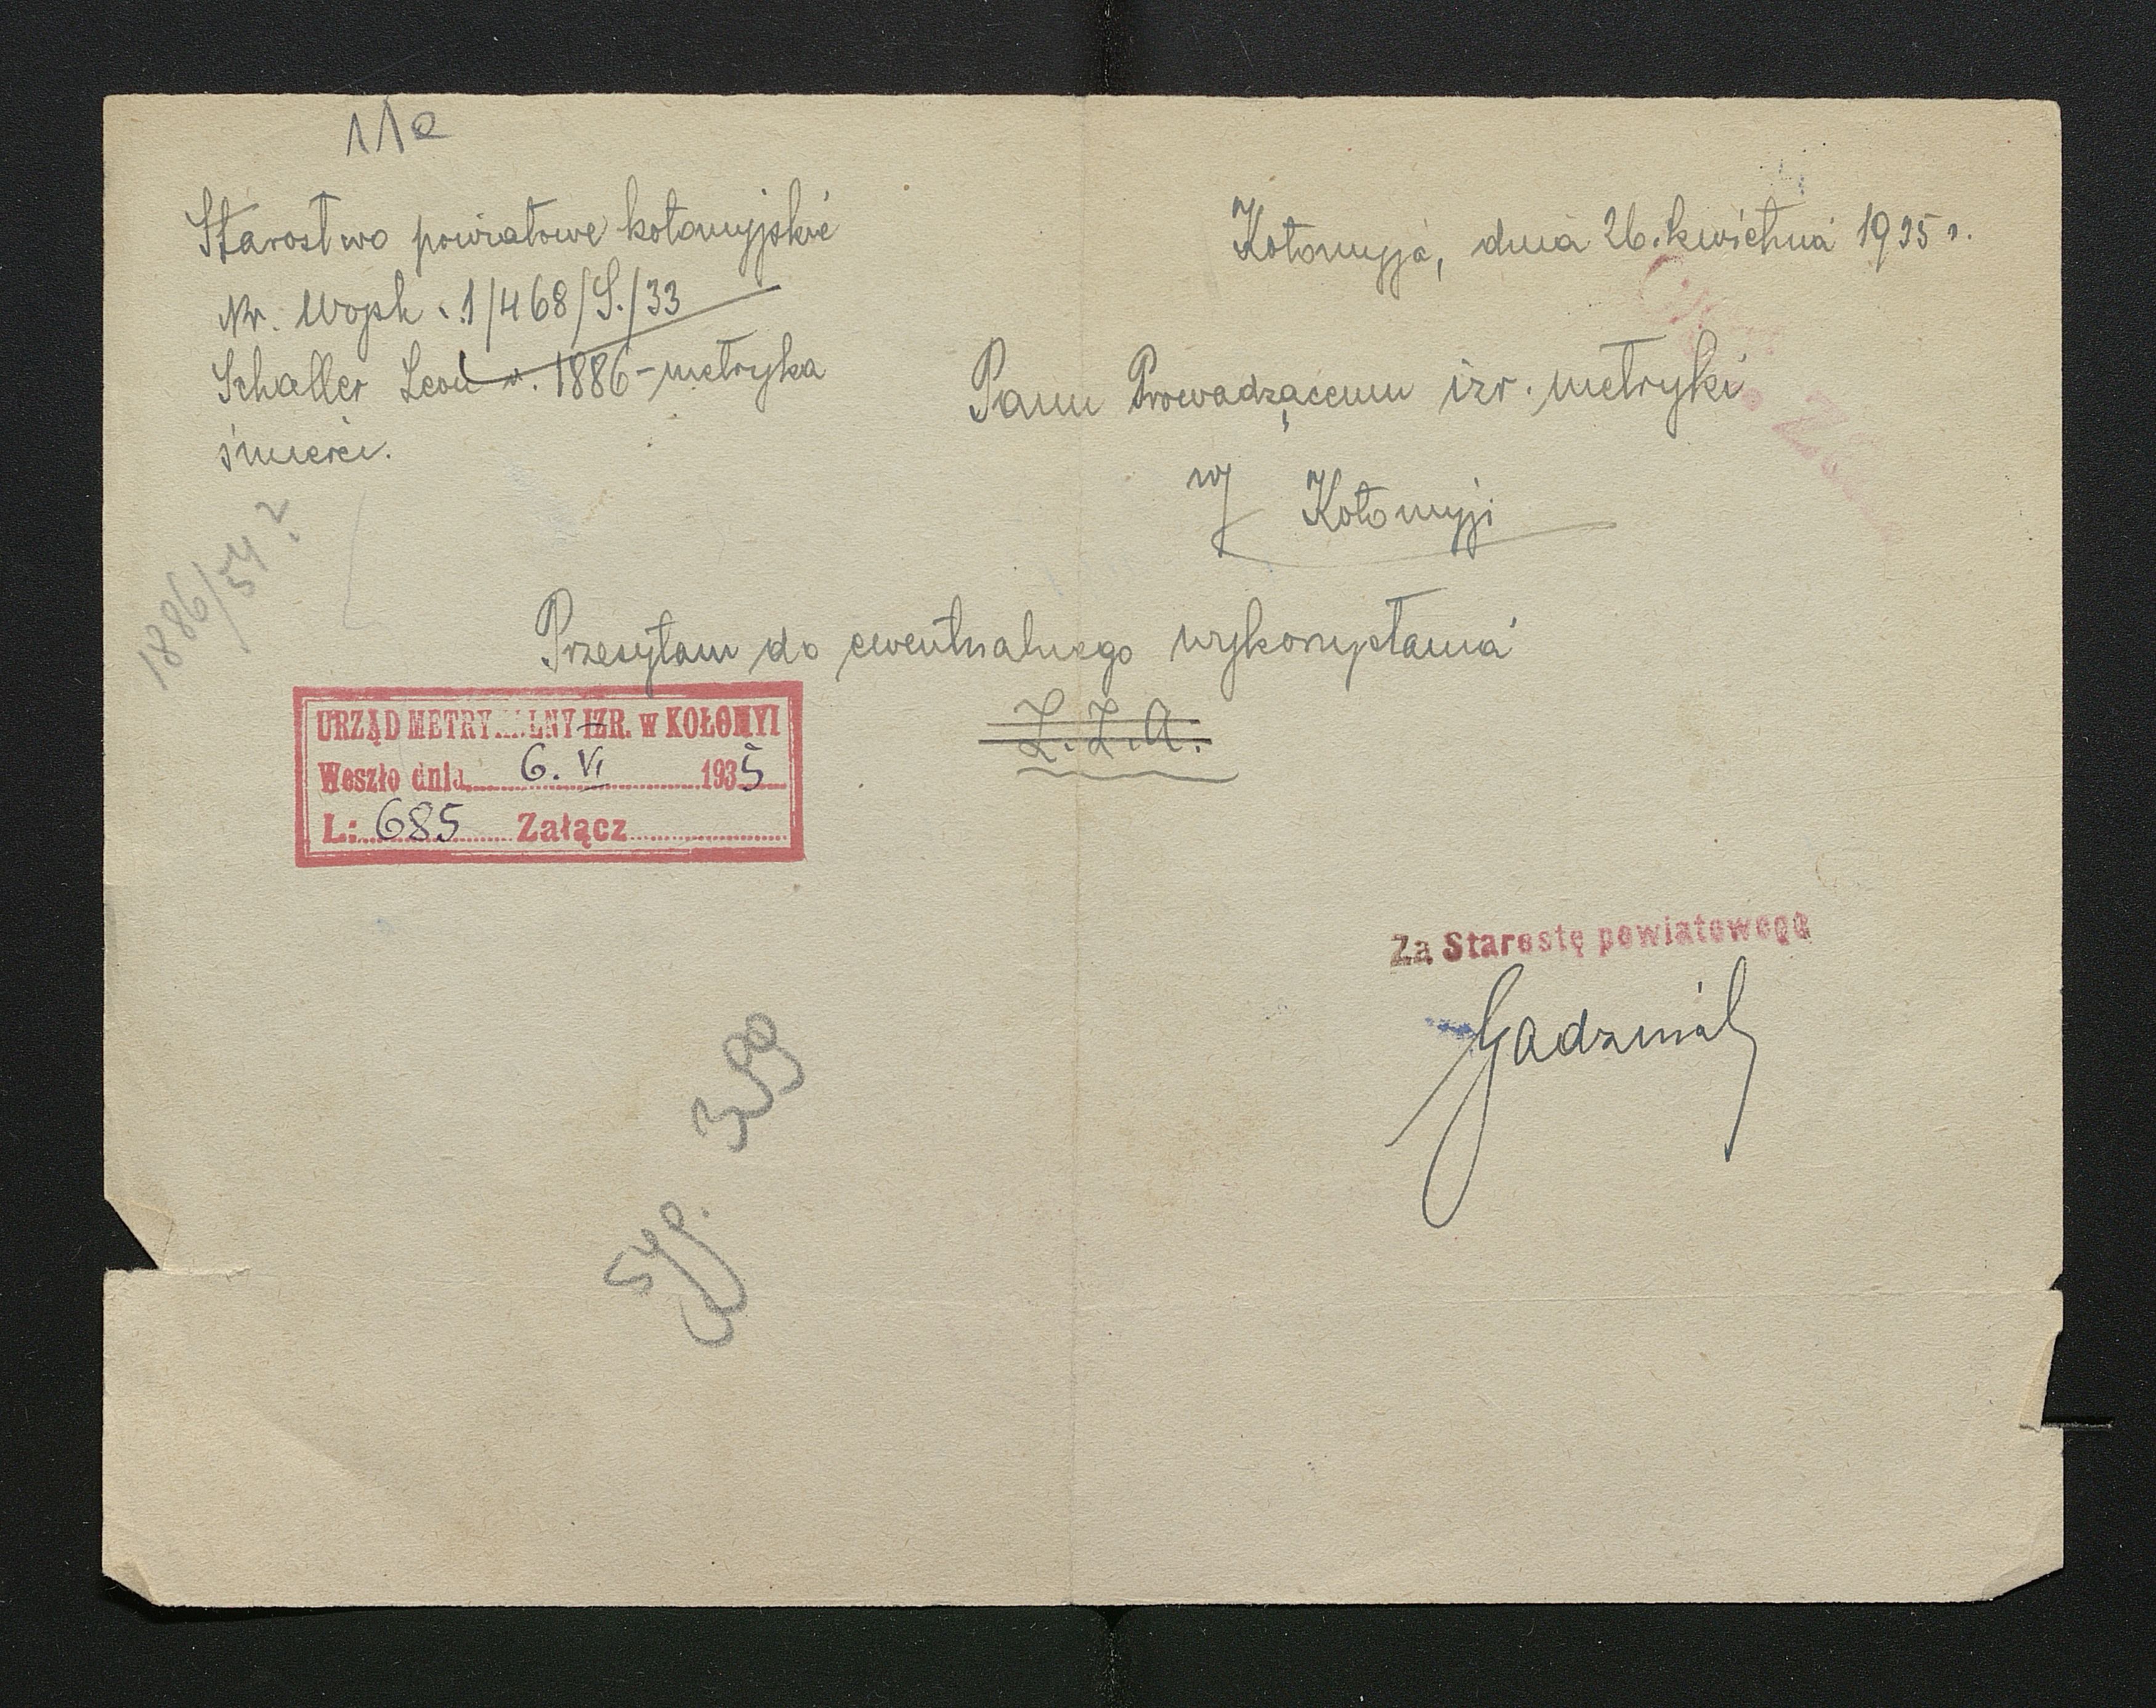 11a
Starostwo powiatowe kołomyjskie
Nr. Wojsk. 1/468/S./33
Schaller Leon u. 1886 - metryka
śmierci.
Kołomyja, dnia 26. kwietnia 1935 r.
Panu Prowadzącemu izr. metryki
w Kołomyji
1886/54?
Przesyłam do ewentualnego wykorzystania
Z. Z. A.
URZĄD METRY...LNY IZR. w KOŁOMYI
Weszło dnia 6. VI 1935
L.: 685 Załącz
Za Starostę powiatowego
399